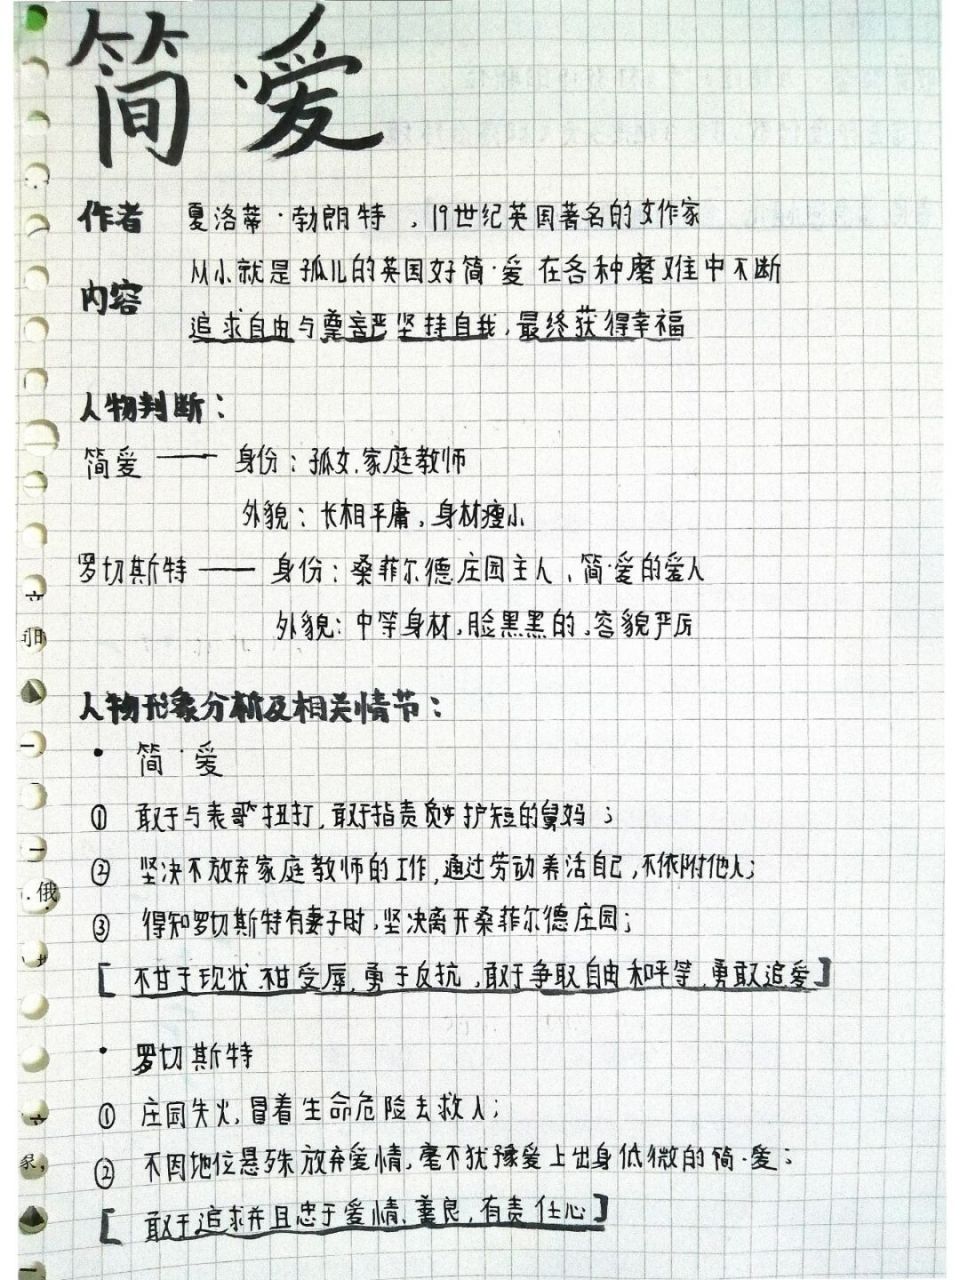 简爱
作者 夏洛蒂·勃朗特,19世纪英国著名的女作家
内容 从小就是孤儿的英国女孩简·爱在各种磨难中不断
追求自由与尊严坚持自我,最终获得幸福
人物判断:
简爱——身份:孤女.家庭教师
外貌:长相平庸,身材瘦小
罗切斯特——身份:桑菲尔德庄园主人、简·爱的爱人
外貌:中等身材,脸黑黑的,容貌严厉
人物形象分析及相关情节:
• 简·爱
① 敢于与表哥扭打,敢于指责护短的舅妈;
② 坚决不放弃家庭教师的工作,通过劳动养活自己,不依附他人;
③ 得知罗切斯特有妻子时,坚决离开桑菲尔德庄园;
[不甘于现状.不甘受辱,勇于反抗,敢于争取自由和平等,勇敢追爱]
• 罗切斯特
① 庄园失火,冒着生命危险去救人;
② 不因地位悬殊放弃爱情,毫不犹豫爱上出身低微的简·爱;
[敢于追求并且忠于爱情、善良,有责任心]
立
旧
一
一
.俄
象,